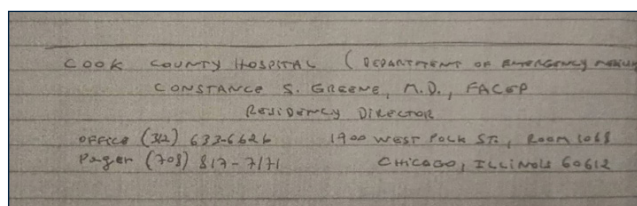 COOK COUNTY HOSPITAL (DEPARTMENT OF EMERGENCY
CONSTANCE S. GREENE, M.D., FACEP
RESIDENCY DIRECTOR
OFFICE (312) 633-6626 1900 WEST POLK ST., ROOM 1068
Pager (708) 817-7171 CHICAGO, ILLINOIS 60612